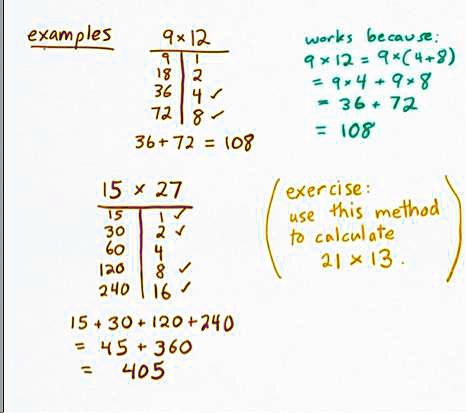 examples
9 × 12
9 1
18 2
36 4 ✓
72 8 ✓
36 + 72 = 108
works because:
9 × 12 = 9 × (4+8)
= 9 × 4 + 9 × 8
= 36 + 72
= 108
15 × 27
15 1 ✓
30 2 ✓
60 4
120 8 ✓
240 16 ✓
15 + 30 + 120 + 240
= 45 + 360
= 405
(exercise:
use this method
to calculate
21 × 13.)